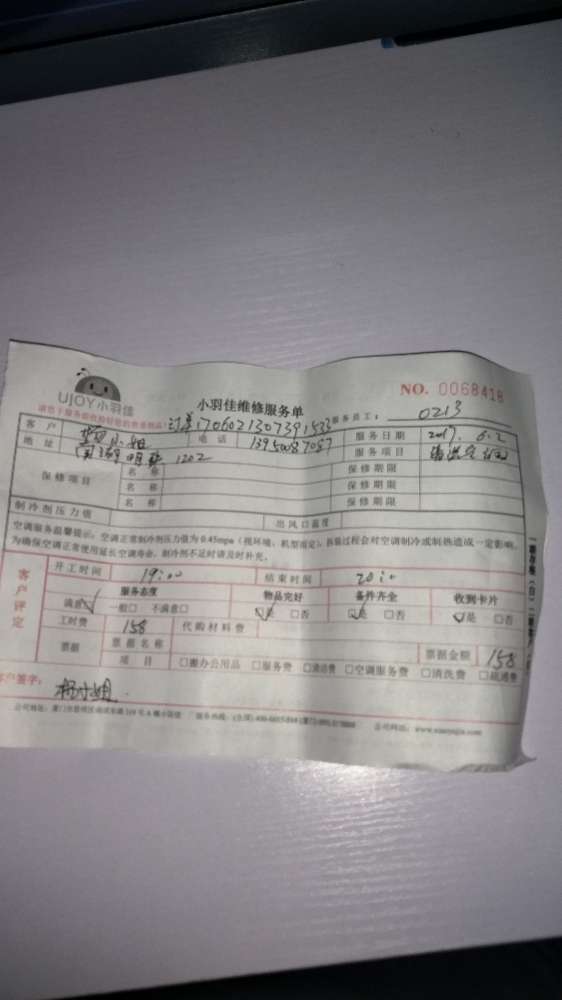 UJOY小羽佳
小羽佳维修服务单
NO. 0068418
请您于服务前收检好您的贵重物品!
订单1706021307391533
服务员工: 0213
客户 小姐 电话 13950087087 服务日期 2017.6.2
地址 1202 服务项目
保修项目 名称 保修期限
名称 保修期限
名称 保修期限
制冷剂压力值 出风口温度
空调服务温馨提示:空调正常制冷剂压力值为0.45mpa(视环境、机型而定),拆装过程会对空调制冷或制热造成一定影响,
为确保空调正常使用延长空调寿命,制冷剂不足时请及时补充。
客户评定
开工时间 19:00 结束时间 20:10
服务态度 物品完好 备件齐全 收到卡片
满意☑ 一般□ 不满意□ ☑是 □否 ☑是 □否 ☑是 □否
工时费 158 代购材料费
票据 票据名称 票据金额 158
项目 □搬办公用品 □服务费 □清洁费 □空调服务费 □清洗费 □疏通费
客户签字: 小姐